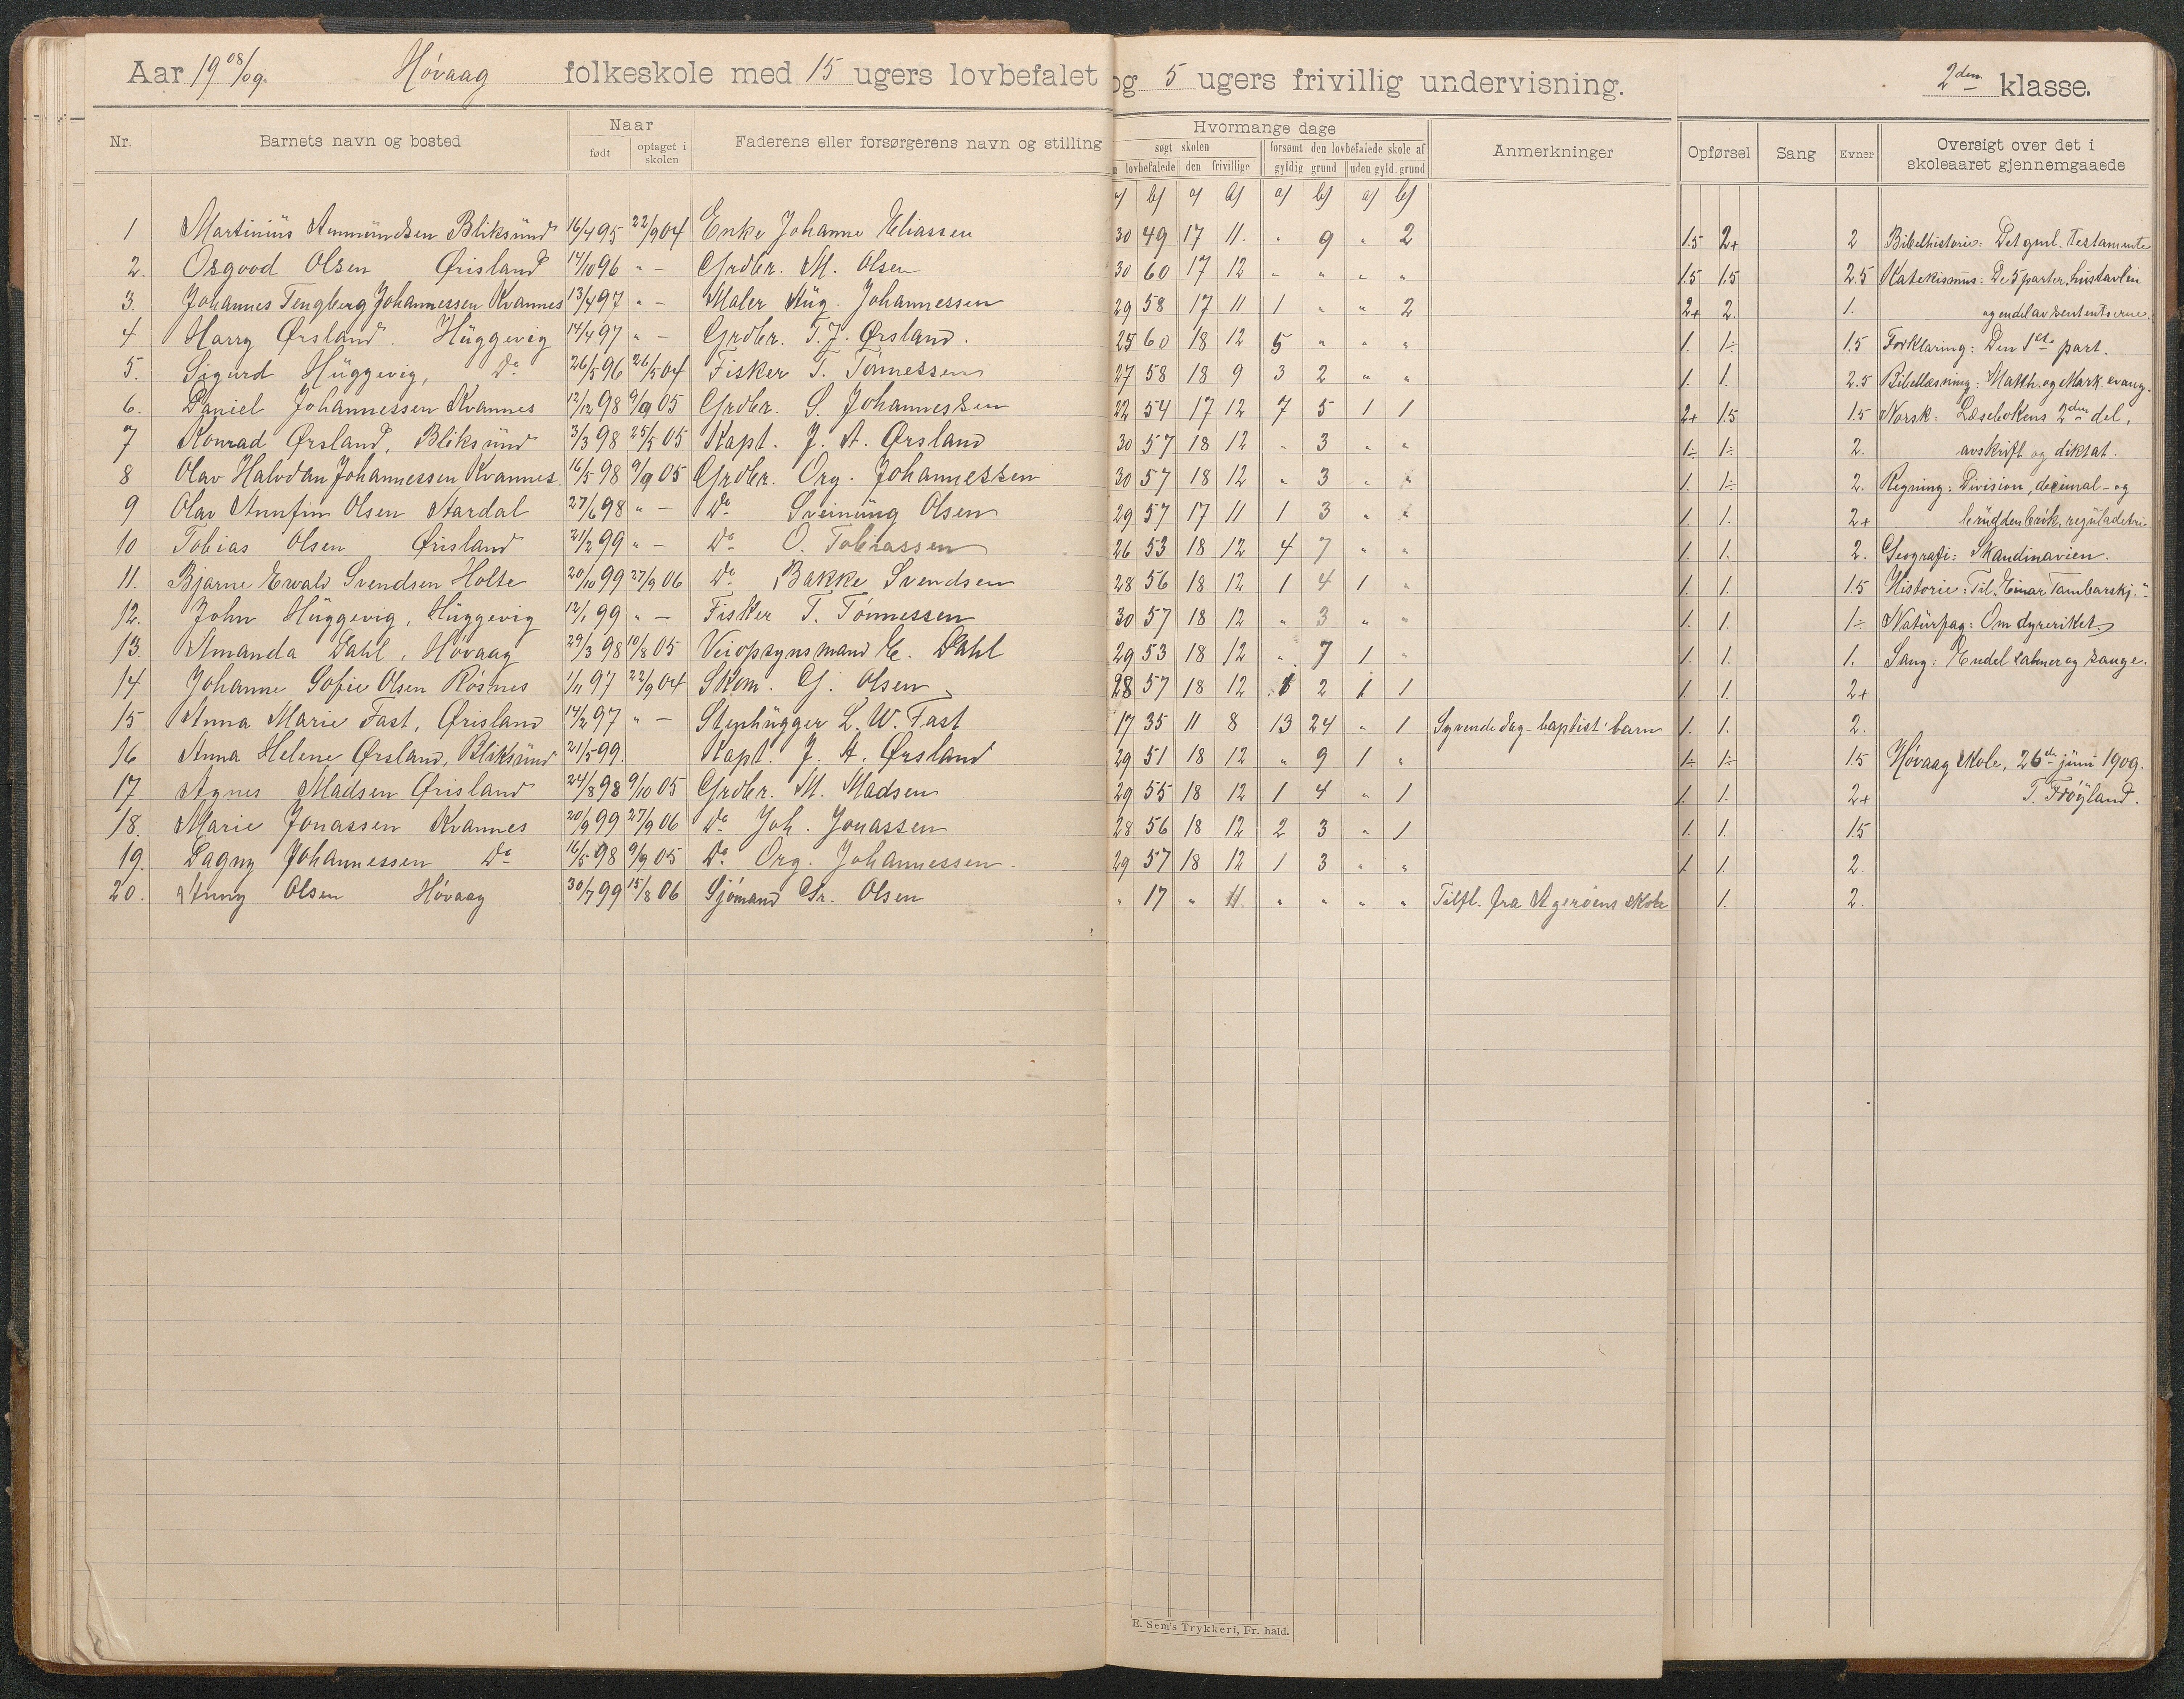 Aar 19 08/09. Høvaag folkeskole med 15 ugers lovbefalet og 5 ugers frivillig undervisning. 2den klasse.
Nr. Barnets navn og bosted Naar født optaget i skolen Faderens eller forsørgerens navn og stilling Hvormange dage søgt skolen lovbefalede den frivillige forsømt den lovbefalede skole af gyldig grund uden gyld. grund Anmerkninger Opførsel Sang Evner Oversigt over det i skoleaaret gjennemgaaede
a) b) a) b) a) b) a) b)
1 Martinius Aanmundsen Bliksund 16/4 95 22/9 04 Enke Johanne Eliassen 30 49 17 11. " 9 " 2 1.5 2+ 2 Bibelhistorie: Det gml. Testamente
2. Osgood Olsen Ørisland 14/10 96 " — Grdbr. M. Olsen 30 60 17 12 " " " " 1.5 1.5 2.5 Katekismus: De 5 parter, hustavlen
3. Johannes Tengberg Johannessen Kvannes 13/4 97 " — Maler Aug. Johannessen 29 58 17 11 1 " " 2 2+ 2. 1. og endel av sententserne.
4 Harry Ørsland, Huggevig 14/4 97 " — Grdbr. T. J. Ørsland. 25 60 18 12 5 " " " 1. 1÷ 1.5 Forklaring: Den 1ste part.
5. Sigurd Huggevig, Do 26/5 96 26/5 04 Fisker T. Tønnessen 27 58 18 9 3 2 " " 1. 1. 2.5 Bibellæsning: Matth. og Mark. evang.
6. Daniel Johannessen Kvannes 12/12 98 9/9 05 Grdbr. S. Johannessen 22 54 17 12 7 5 1 1 2+ 1.5 1.5 Norsk: Læsebokens 2den del,
7 Konrad Ørsland, Bliksund 3/3 98 25/5 05 Kapt. J. A. Ørsland 30 57 18 12 " 3 " " 1÷ 1÷ 2. avskrift og diktat.
8 Olav Halvdan Johannessen Kvannes 16/5 98 9/9 05 Grdbr. Org. Johannessen 30 57 18 12 " 3 " " 1. 1÷ 2. Regning: Division, decimal- og
9 Olav Annfin Olsen Aardal 27/6 98 " — Do Sveinung Olsen 29 57 17 11 1 3 " " 1. 1. 2+ bruddenbrik, reguladetri
10 Tobias Olsen Ørisland 21/2 99 " — Do O. Tobiassen 26 53 18 12 4 7 " " 1. 1. 2. Geografi: Skandinavien.
11. Bjarne Ewald Svendsen Holte 20/10 99 27/9 06 Do Bakke Svendsen 28 56 18 12 1 4 1 " 1. 1. 1.5 Historie: Til „Einar Tambarskj."
12. John Huggevig, Huggevig 12/1 99 " — Fisker T. Tønnessen 30 57 18 12 " 3 " " 1. 1. 1÷ Naturfag: Om dyreriket.
13. Amanda Dahl, Høvaag 29/3 98 10/8 05 Veiopsynsmand E. Dahl 29 53 18 12 " 7 1 " 1. 1. 1. Sang: Endel salmer og sange.
14 Johanne Sofie Olsen Røsnes 1/11 97 22/9 04 Skom. G. Olsen 28 57 18 12 1 2 1 1 1. 1. 2+
15 Anna Marie Fast, Ørisland 14/2 97 " — Stenhugger L. W. Fast 17 35 11 8 13 24 " 1 Syvende dag-baptist' barn 1. 1. 2.
16 Anna Helene Ørsland, Bliksund 21/5 99. Kapt. J. A. Ørsland 29 51 18 12 " 9 1 " 1÷ 1÷ 1.5 Høvaag skole, 26de juni 1909.
17 Agnes Madsen Ørisland 24/8 98 9/10 05 Grdbr. M. Madsen 29 55 18 12 1 4 " 1 1. 1. 2+ T. Frøyland.
18. Marie Jonassen Kvannes 20/9 99 27/9 06 Do Joh. Jonassen 28 56 18 12 2 3 " 1 1. 1. 1.5
19. Dagny Johannessen Do 16/5 98 9/9 05 Do Org. Johannessen. 29 57 18 12 1 3 " " 1. 1. 2.
20. Anny Olsen Høvaag 30/7 99 15/8 06 Sjømand Chr. Olsen " 17 " 11. " " " " Tilfl. fra Agerøens skole 1. 2.
E. Sem's Trykkeri, Fr. hald.